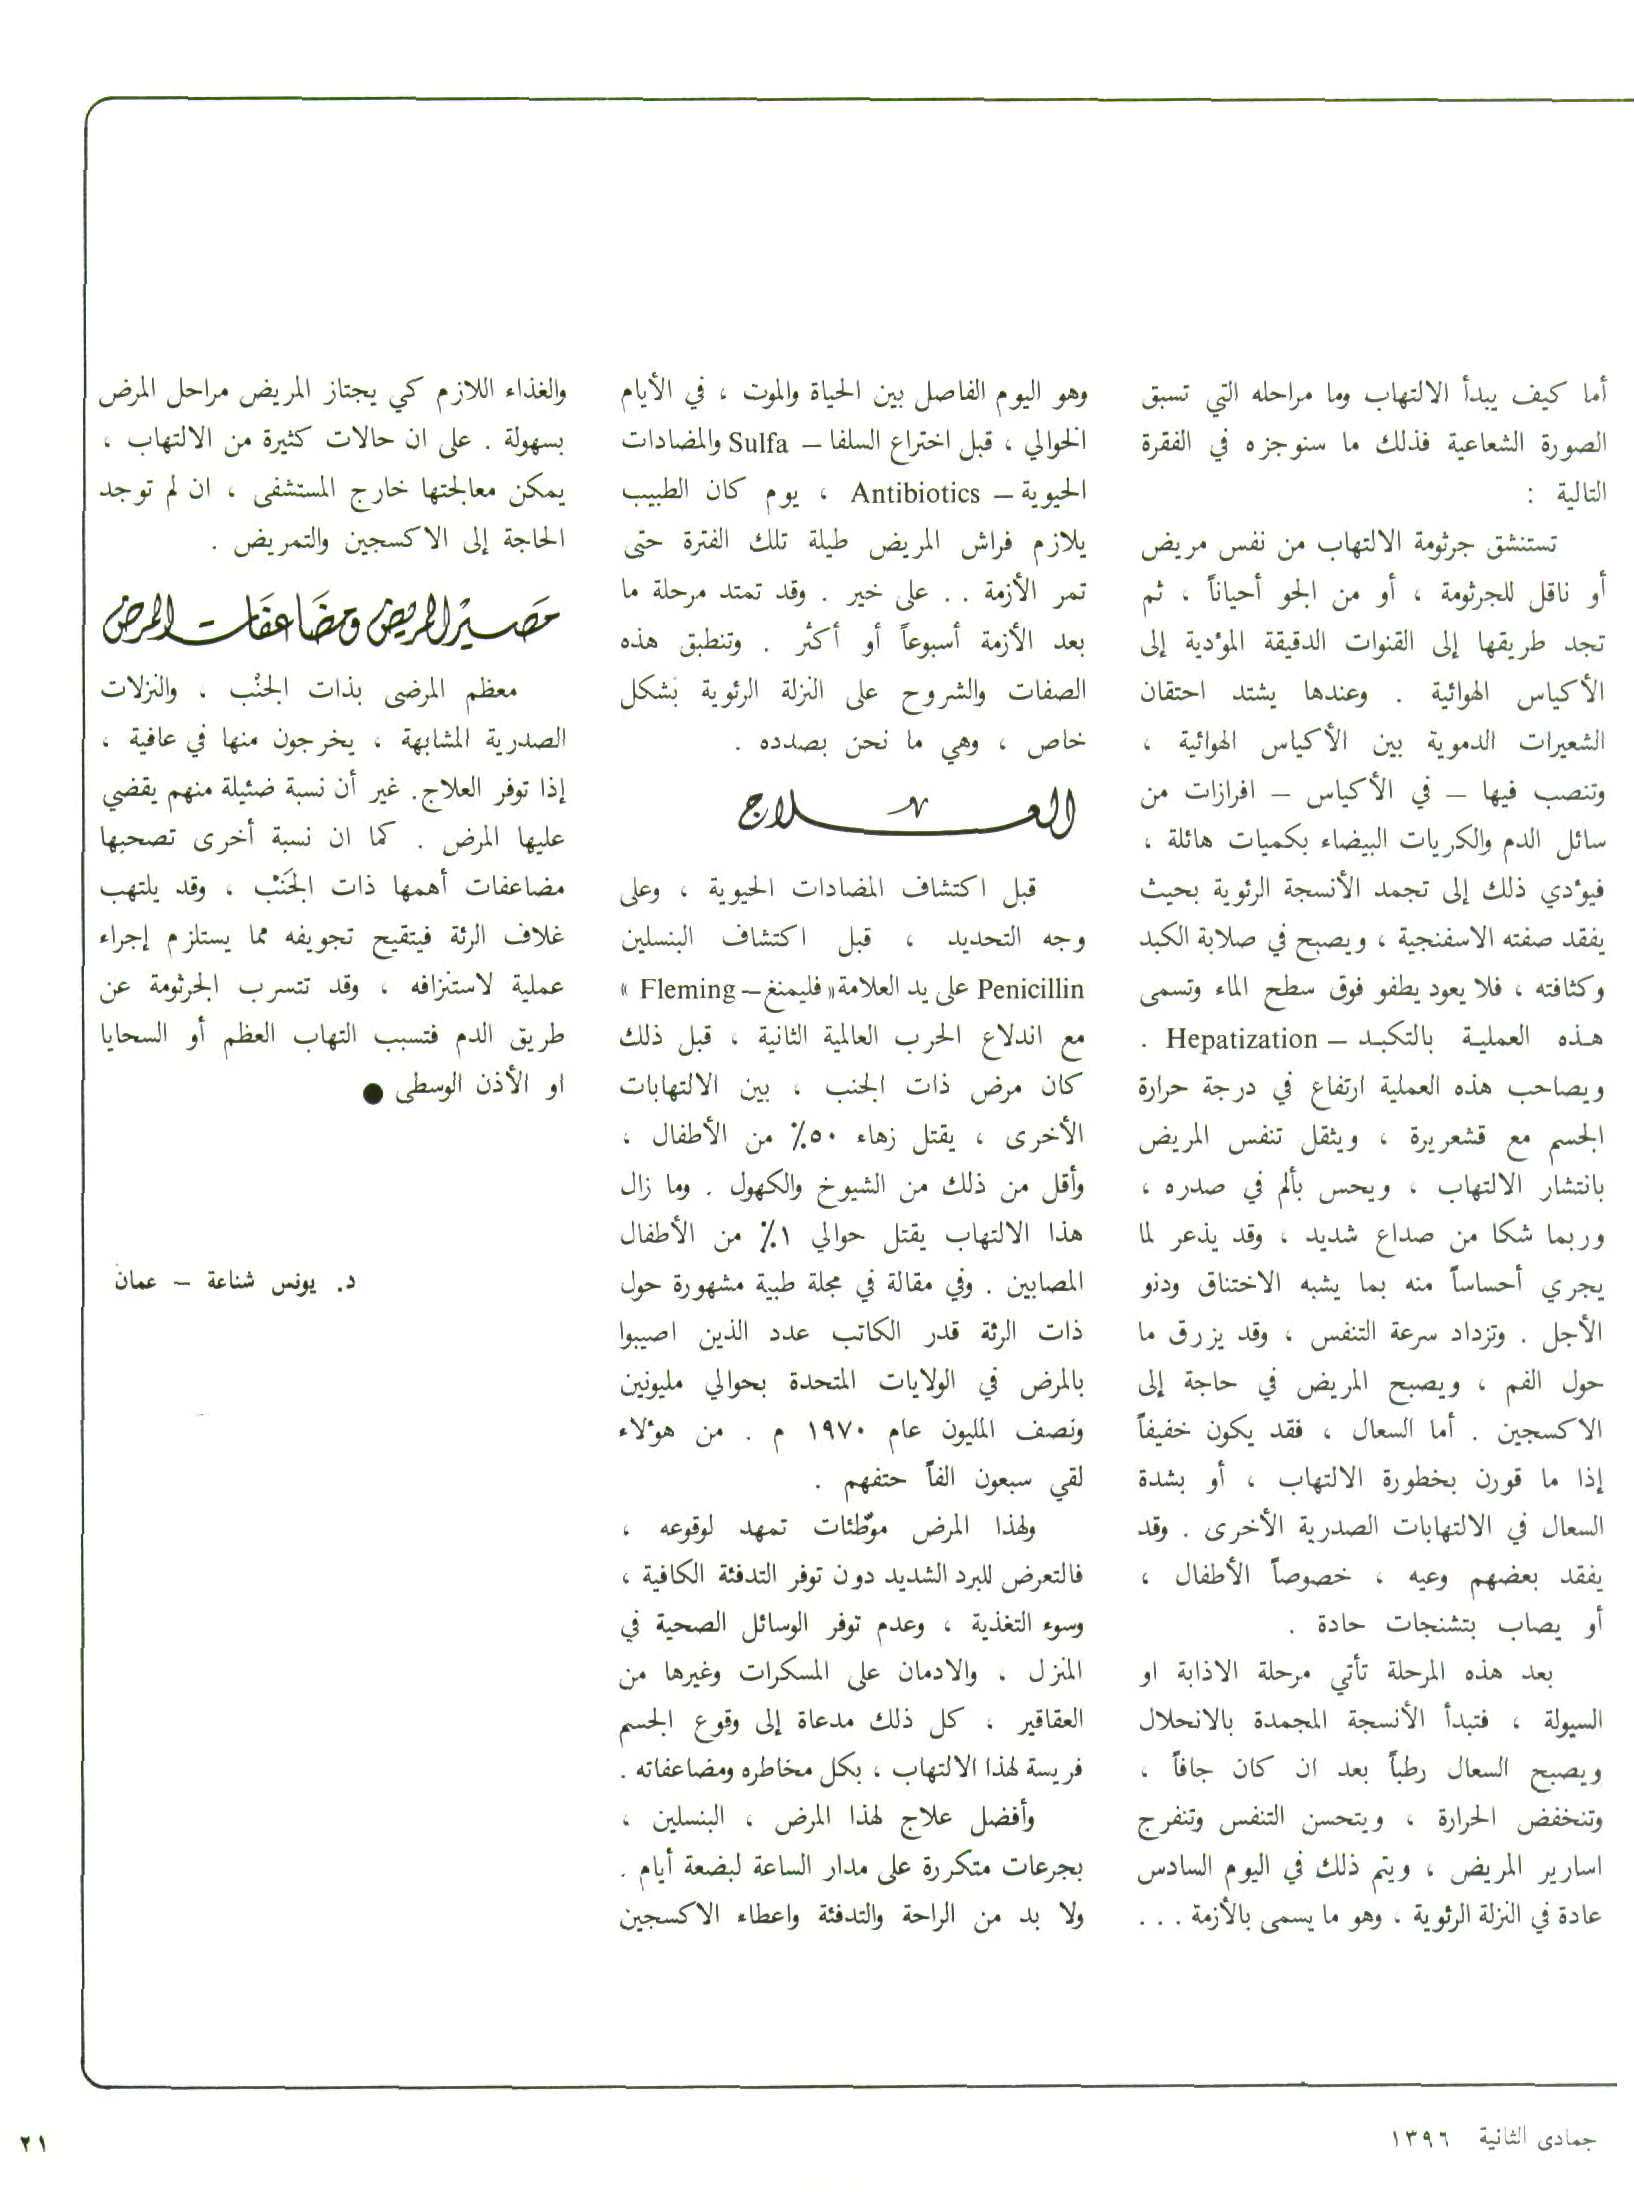 أما كيف يبدأ الالتهاب وما مراحله التي تسبق
الصورة الشعاعية فذلك ما سنوجزه في الفقرة
التالية :
تستنشق جرثومة الالتهاب من نفس مريض
أو ناقل للجرثومة ، أو من الجو أحياناً ، ثم
تجد طريقها إلى القنوات الدقيقة المؤدية إلى
الأكياس الهوائية . وعندها يشتد احتقان
الشعيرات الدموية بين الأكياس الهوائية ،
وتنصب فيها – في الأكياس – افرازات من
سائل الدم والكريات البيضاء بكميات هائلة ،
فيؤدي ذلك إلى تجمد الأنسجة الرئوية بحيث
يفقد صفته الاسفنجية ، ويصبح في صلابة الكبد
وكثافته ، فلا يعود يطفو فوق سطح الماء وتسمى
هذه العملية بالتكبد – Hepatization .
ويصاحب هذه العملية ارتفاع في درجة حرارة
الجسم مع قشعريرة ، ويثقل تنفس المريض
بانتشار الالتهاب ، ويحس بألم في صدره ،
وربما شكا من صداع شديد ، وقد يذعر لما
يجري أحساساً منه بما يشبه الاختناق ودنو
الأجل . وتزداد سرعة التنفس ، وقد يزرق ما
حول الفم ، ويصبح المريض في حاجة إلى
الاكسجين . أما السعال ، فقد يكون خفيفاً
إذا ما قورن بخطورة الالتهاب ، أو بشدة
السعال في الالتهابات الصدرية الأخرى . وقد
يفقد بعضهم وعيه ، خصوصاً الأطفال ،
أو يصاب بتشنجات حادة .
بعد هذه المرحلة تأتي مرحلة الاذابة او
السيولة ، فتبدأ الأنسجة المجمدة بالانحلال
ويصبح السعال رطباً بعد ان كان جافاً ،
وتنخفض الحرارة ، ويتحسن التنفس وتنفرج
اسارير المريض ، ويتم ذلك في اليوم السادس
عادة في النزلة الرئوية ، وهو ما يسمى بالأزمة . . .
وهو اليوم الفاصل بين الحياة والموت ، في الأيام
الخوالي ، قبل اختراع السلفا – Sulfa والمضادات
الحيوية – Antibiotics ، يوم كان الطبيب
يلازم فراش المريض طيلة تلك الفترة حتى
تمر الأزمة . . على خير . وقد تمتد مرحلة ما
بعد الأزمة أسبوعاً أو أكثر . وتنطبق هذه
الصفات والشروح على النزلة الرئوية بشكل
خاص ، وهي ما نحن بصدده .
العلاج
قبل اكتشاف المضادات الحيوية ، وعلى
وجه التحديد ، قبل اكتشاف البنسلين
Penicillin على يد العلامة « فليمنغ – Fleming »
مع اندلاع الحرب العالمية الثانية ، قبل ذلك
كان مرض ذات الجنب ، بين الالتهابات
الأخرى ، يقتل زهاء ٥٠٪ من الأطفال ،
وأقل من ذلك من الشيوخ والكهول . وما زال
هذا الالتهاب يقتل حوالي ١٪ من الأطفال
المصابين . وفي مقالة في مجلة طبية مشهورة حول
ذات الرئة قدر الكاتب عدد الذين اصيبوا
بالمرض في الولايات المتحدة بحوالي مليونين
ونصف المليون عام ١٩٧٠ م . من هؤلاء
لقي سبعون الفاً حتفهم .
ولهذا المرض موطّئات تمهد لوقوعه ،
فالتعرض للبرد الشديد دون توفر التدفئة الكافية ،
وسوء التغذية ، وعدم توفر الوسائل الصحية في
المنزل ، والادمان على المسكرات وغيرها من
العقاقير ، كل ذلك مدعاة إلى وقوع الجسم
فريسة لهذا الالتهاب ، بكل مخاطره ومضاعفاته .
وأفضل علاج لهذا المرض ، البنسلين ،
بجرعات متكررة على مدار الساعة لبضعة أيام .
ولا بد من الراحة والتدفئة واعطاء الاكسجين
والغذاء اللازم كي يجتاز المريض مراحل المرض
بسهولة . على ان حالات كثيرة من الالتهاب ،
يمكن معالجتها خارج المستشفى ، ان لم توجد
الحاجة إلى الاكسجين والتمريض .
مَصيْر المريض ومضَاعفَات المرض
معظم المرضى بذات الجنْب ، والنزلات
الصدرية المشابهة ، يخرجون منها في عافية ،
إذا توفر العلاج. غير أن نسبة ضئيلة منهم يقضي
عليها المرض . كما ان نسبة أخرى تصحبها
مضاعفات أهمها ذات الجَنْب ، وقد يلتهب
غلاف الرئة فيتقيح تجويفه مما يستلزم إجراء
عملية لاستنزافه ، وقد تتسرب الجرثومة عن
طريق الدم فتسبب التهاب العظم أو السحايا
او الأذن الوسطى ●
د. يونس شناعة – عمان
جمادى الثانية ١٣٩٦
٢١